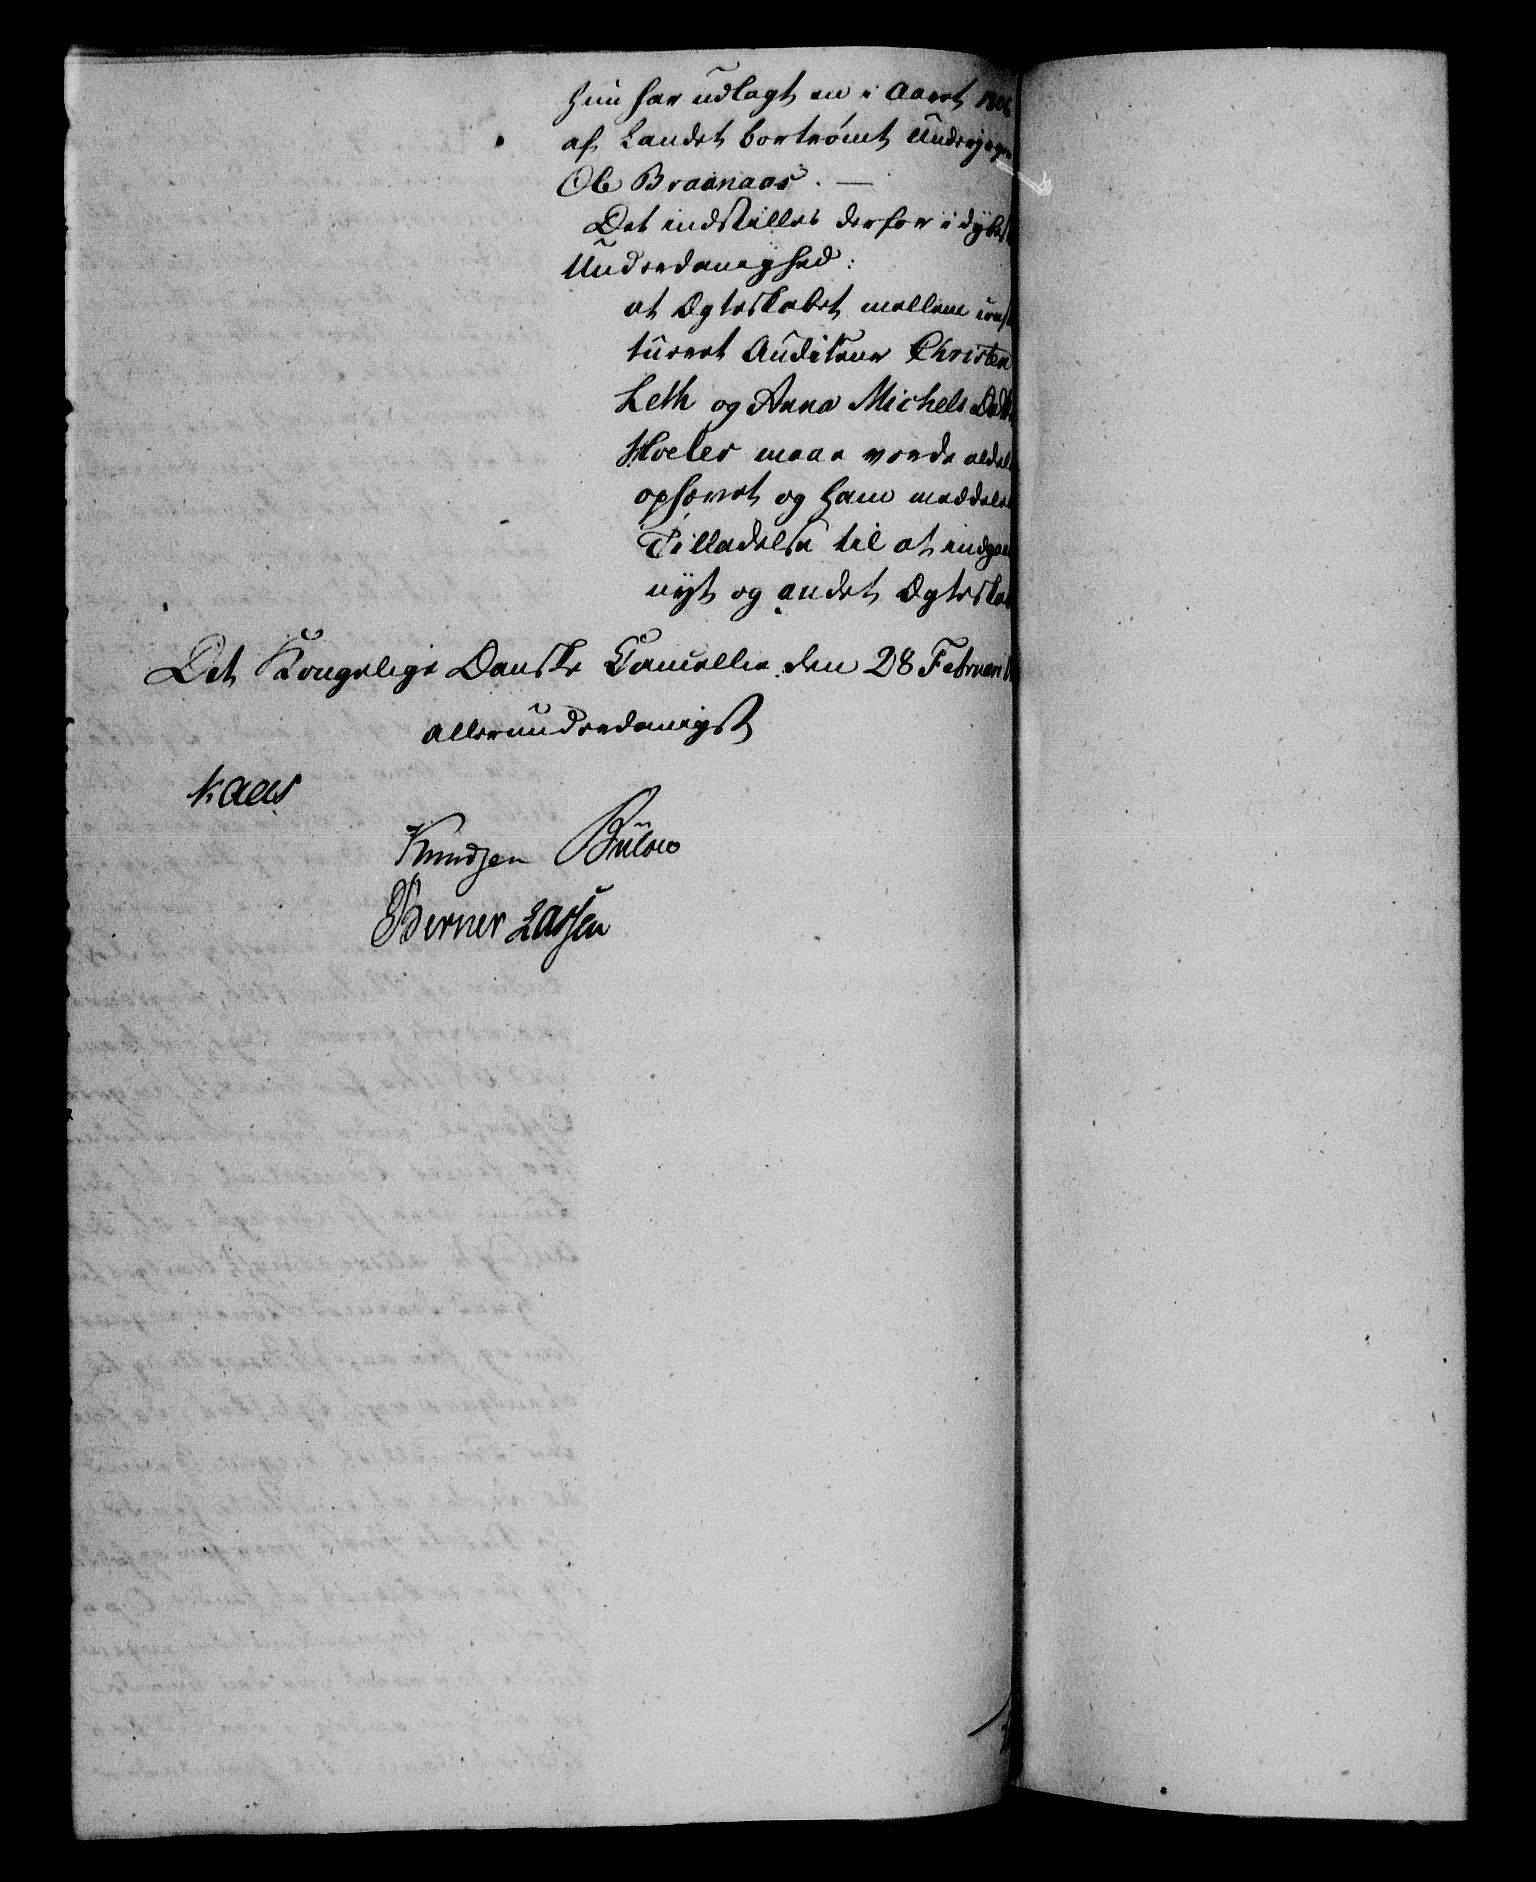 hun har udlagt en i Aaret 1806
af Landet bortrømt Underjæger
Ole Braanaas. —
Det indstilles derfor i dybest
Underdanighed:
at Ægteskabet mellem const
tueret Auditeur Christen
Leth og Anna Michels Datter
Hoeler maae vorde aldeles
ophævet og ham meddeles
Tilladelse til at indgaae
nyt og andet Ægteskab
Det Kongelige Danske Cancellie den 28 Februarii
allerunderdanigst
Kaas
Knudsen Bülow
Berner Lassen